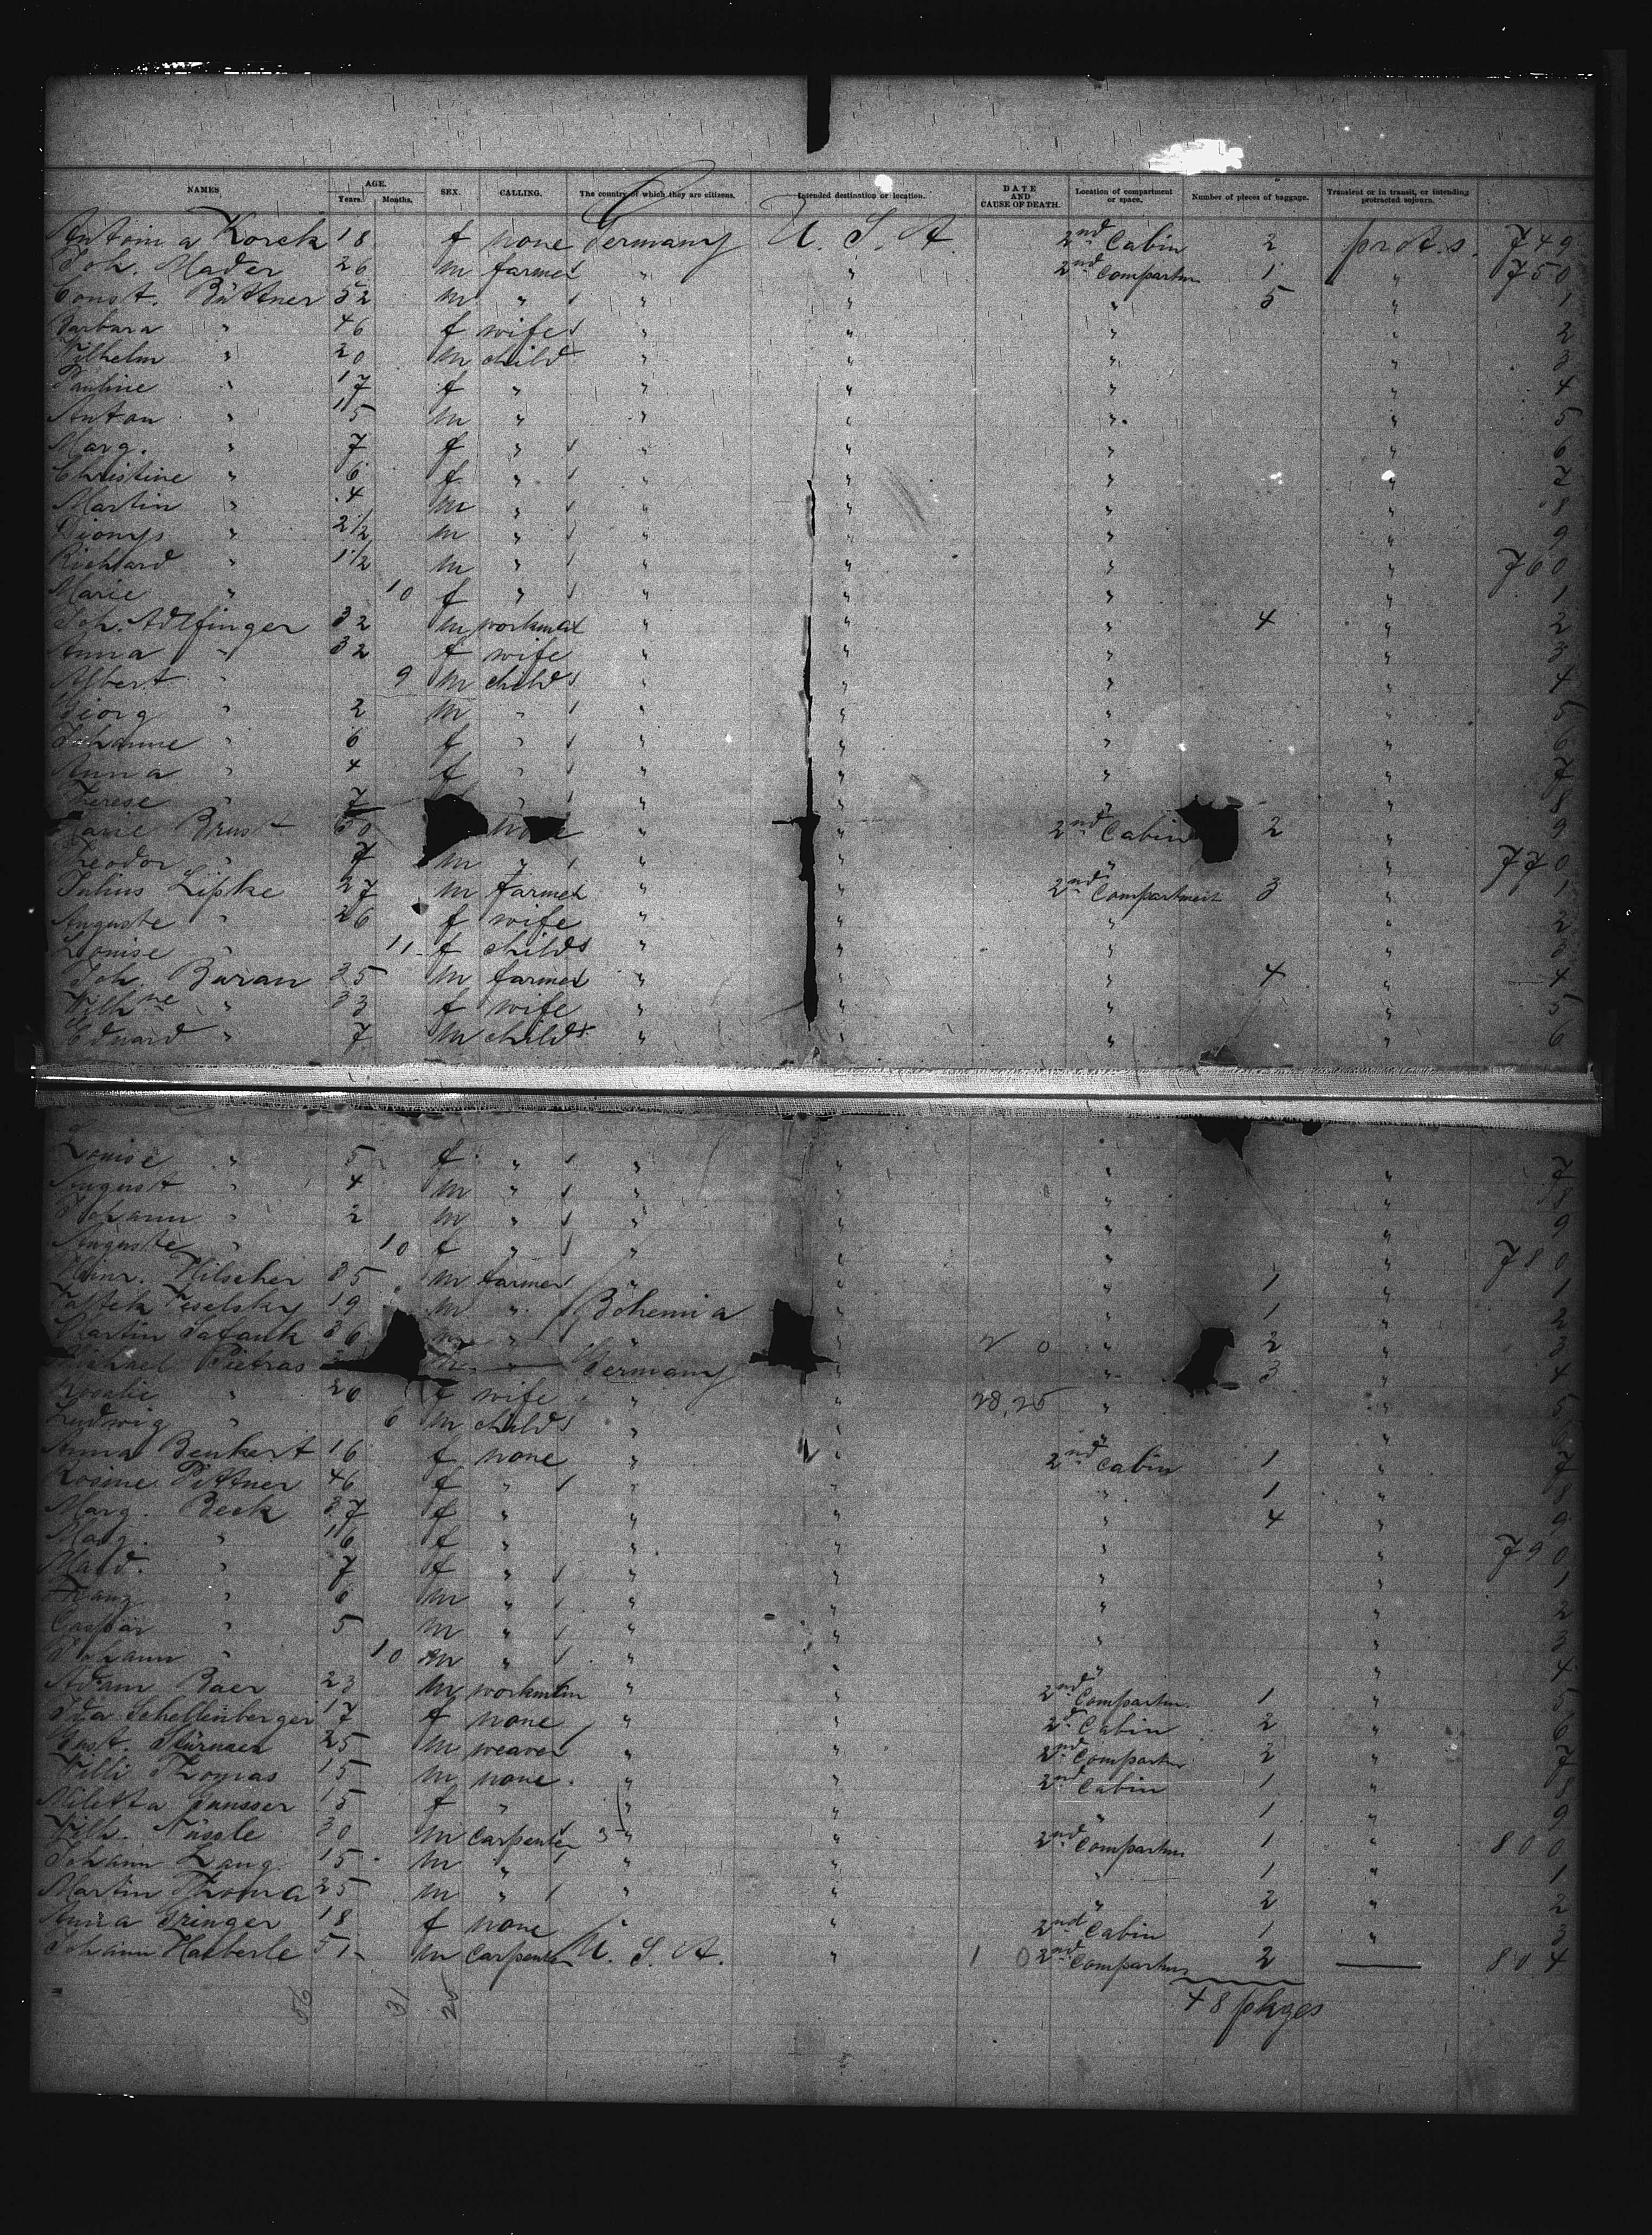 NAMES. AGE. Years. Months. SEX. CALLING. The country of which they are citizens. Intended destination or location. DATE AND CAUSE OF DEATH. Location of compartment or space. Number of pieces of baggage. Transient or in transit, or intending protracted sojourn.
Antoin a Korek 18 f none Germany U. S. A 2nd Cabin 2 prot.s. 749
Joh. Mader 26 m farmer " " 2nd Compartm 1 " 750
Const. Büttner 52 m " " " " 5 " 1
Barbara " 46 f wife " " " " 2
Wilhelm " 20 m child " " " " 3
Pauline " 17 f " " " " " 4
Anton " 15 m " " " " " 5
Marg. " 7 f " " " " " 6
Christine " 6 f " " " " " 7
Martin " 4 m " " " " " 8
Dionys " 2½ m " " " " " 9
Richard " 1½ m " " " " " 760
Marie " 10 f " " " " " 1
Joh. Adlfinger 32 m workman " " " 4 " 2
Anna " 32 f wife " " " " 3
Albert " 9 m child " " " " 4
Georg " 2 m " " " " " 5
Johanne " 6 f " " " " " 6
Anna " 4 f " " " " " 7
Therese " 7 " " " " " 8
Marie Brust 60 none " " 2nd Cabin 2 " 9
Theodor " 7 m " " " " " 770
Julius Lipke 27 m farmer " " 2nd Compartment 3 " 1
Auguste " 26 f wife " " " " 2
Louise " 11 f child " " " " 3
Joh. Baran 35 m farmer " " " 4 " 4
Wilhne " 33 f wife " " " " 5
Eduard " 7 m child " " " " 6
Louise " 5 f " " " " " 7
August " 4 m " " " " " 8
Johann " 2 m " " " " " 9
Auguste " 10 f " " " " " 780
Heinr. Hilscher 35 m farmer " " " 1 " 1
Veselsky 19 m " Bohemia " " 1 " 2
Martin 36 m " " " " 2 " 3
Michael Pietras m " Germany " " 3 " 4
Rosalie " 20 f wife " " " " 5
Ludwig " 6 m child " " " " 6
Anna Benkert 16 f none " " 2nd Cabin 1 " 7
Rosine Pittner 46 f " " " " 1 " 8
Marg. Beck 37 f " " " " 4 " 9
Marg. " 16 f " " " " " 790
" 7 f " " " " " 1
Franz " 6 m " " " " " 2
Caspar " 5 m " " " " " 3
Johann " 10 m " " " " " 4
Adam Baer 23 m workman " " 2nd Compartm. 1 " 5
Ida Schellenberger 17 f none " " 2nd Cabin 2 " 6
Gust. Stürmer 25 m weaver " " 2nd Compartm 2 " 7
Willi Thomas 15 m none " " 2nd Cabin 1 " 8
15 f " " " " 1 " 9
Wilh. Nüssle 30 m Carpenter " " 2nd Compartm 1 " 800
Johann Lang 15 m " " " " 1 " 1
Martin Thoma 25 m " " " " 2 " 2
Anna 18 f none " " 2nd Cabin 1 " 3
Johann Haeberle 51 m Carpenter U. S. A. " 1 0 2nd Compartm 2 — 804
31 25 48 pkges